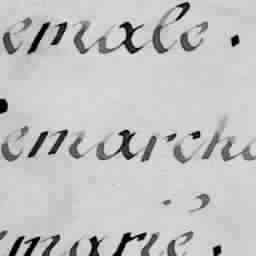 emale.
emarche
marié.